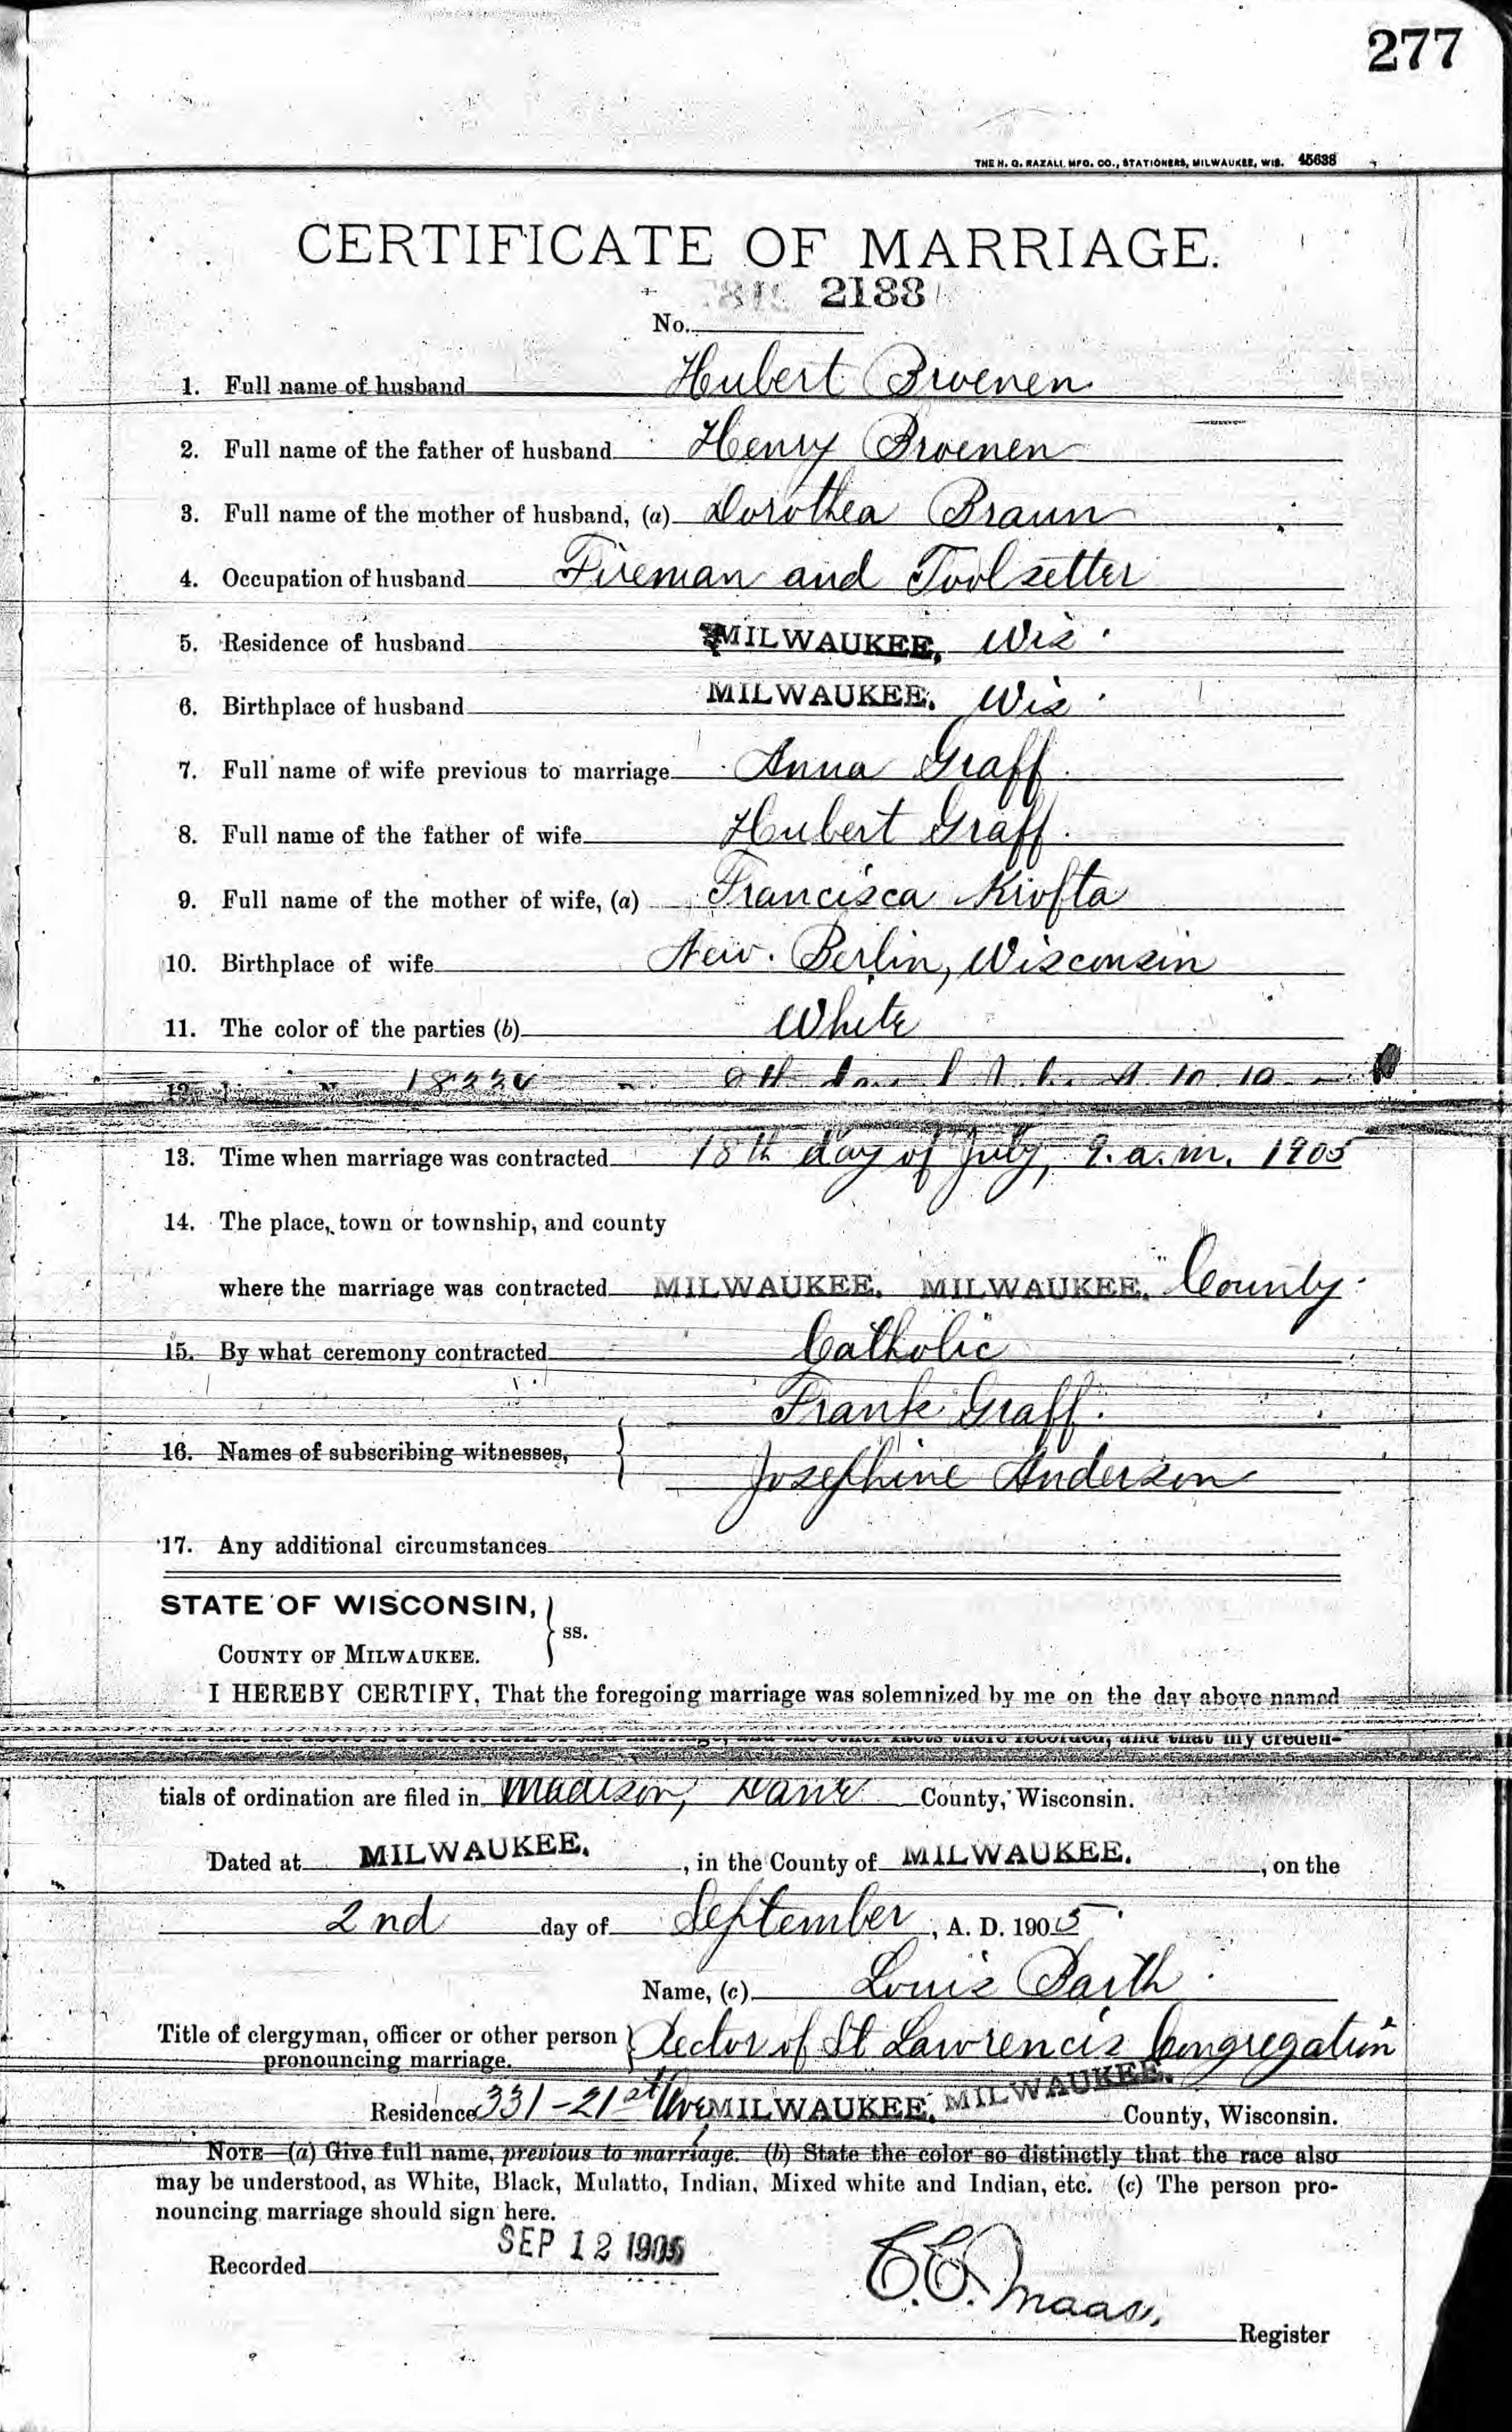 277
THE H. G. RAZALL MFG. CO., STATIONERS, MILWAUKEE, WIS. 45638
CERTIFICATE OF MARRIAGE.
2188
No.
1. Full name of husband Hubert Broenen
2. Full name of the father of husband Henry Broenen
3. Full name of the mother of husband, (a) Dorothea Braun
4. Occupation of husband Fireman and Toolsetter
5. Residence of husband MILWAUKEE, Wis.
6. Birthplace of husband MILWAUKEE. Wis.
7. Full name of wife previous to marriage Anna Graff.
8. Full name of the father of wife Hubert Graff.
9. Full name of the mother of wife, (a) Francisca Krofta
10. Birthplace of wife New. Berlin, Wisconsin
11. The color of the parties (b) White
12.
13. Time when marriage was contracted 18th day of July, 9. a. m. 1905
14. The place, town or township, and county
where the marriage was contracted MILWAUKEE. MILWAUKEE. County.
15. By what ceremony contracted Catholic
Frank Graff.
16. Names of subscribing witnesses,
Josephine Anderson
17. Any additional circumstances
STATE OF WISCONSIN,
ss.
COUNTY OF MILWAUKEE.
I HEREBY CERTIFY, That the foregoing marriage was solemnized by me on the day above named
and that my creden-
tials of ordination are filed in Madison, Dane County, Wisconsin.
Dated at MILWAUKEE. , in the County of MILWAUKEE. , on the
2nd day of September , A. D. 1905.
Name, (c) Louis Barth.
Title of clergyman, officer or other person } Rector of St Lawrencis Congregation
pronouncing marriage.
Residence 331-21st Ave, MILWAUKEE. MILWAUKEE. County, Wisconsin.
NOTE—(a) Give full name, previous to marriage. (b) State the color so distinctly that the race also
may be understood, as White, Black, Mulatto, Indian, Mixed white and Indian, etc. (c) The person pro-
nouncing marriage should sign here.
Recorded SEP 12 1905
C.C. Maas,
Register